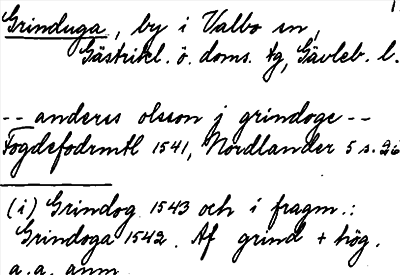 Grinduga, by i Valbo sn,
Gästrikl. ö. doms. tg, Gävleb. l.
-- anders olsson j grindoge --
Fogdefodrmtl 1541, Nordlander 5 s. 26
(i) Grindog 1543 och i fragm.:
Grindoga 1542. Af grind + hög.
a. a. anm.